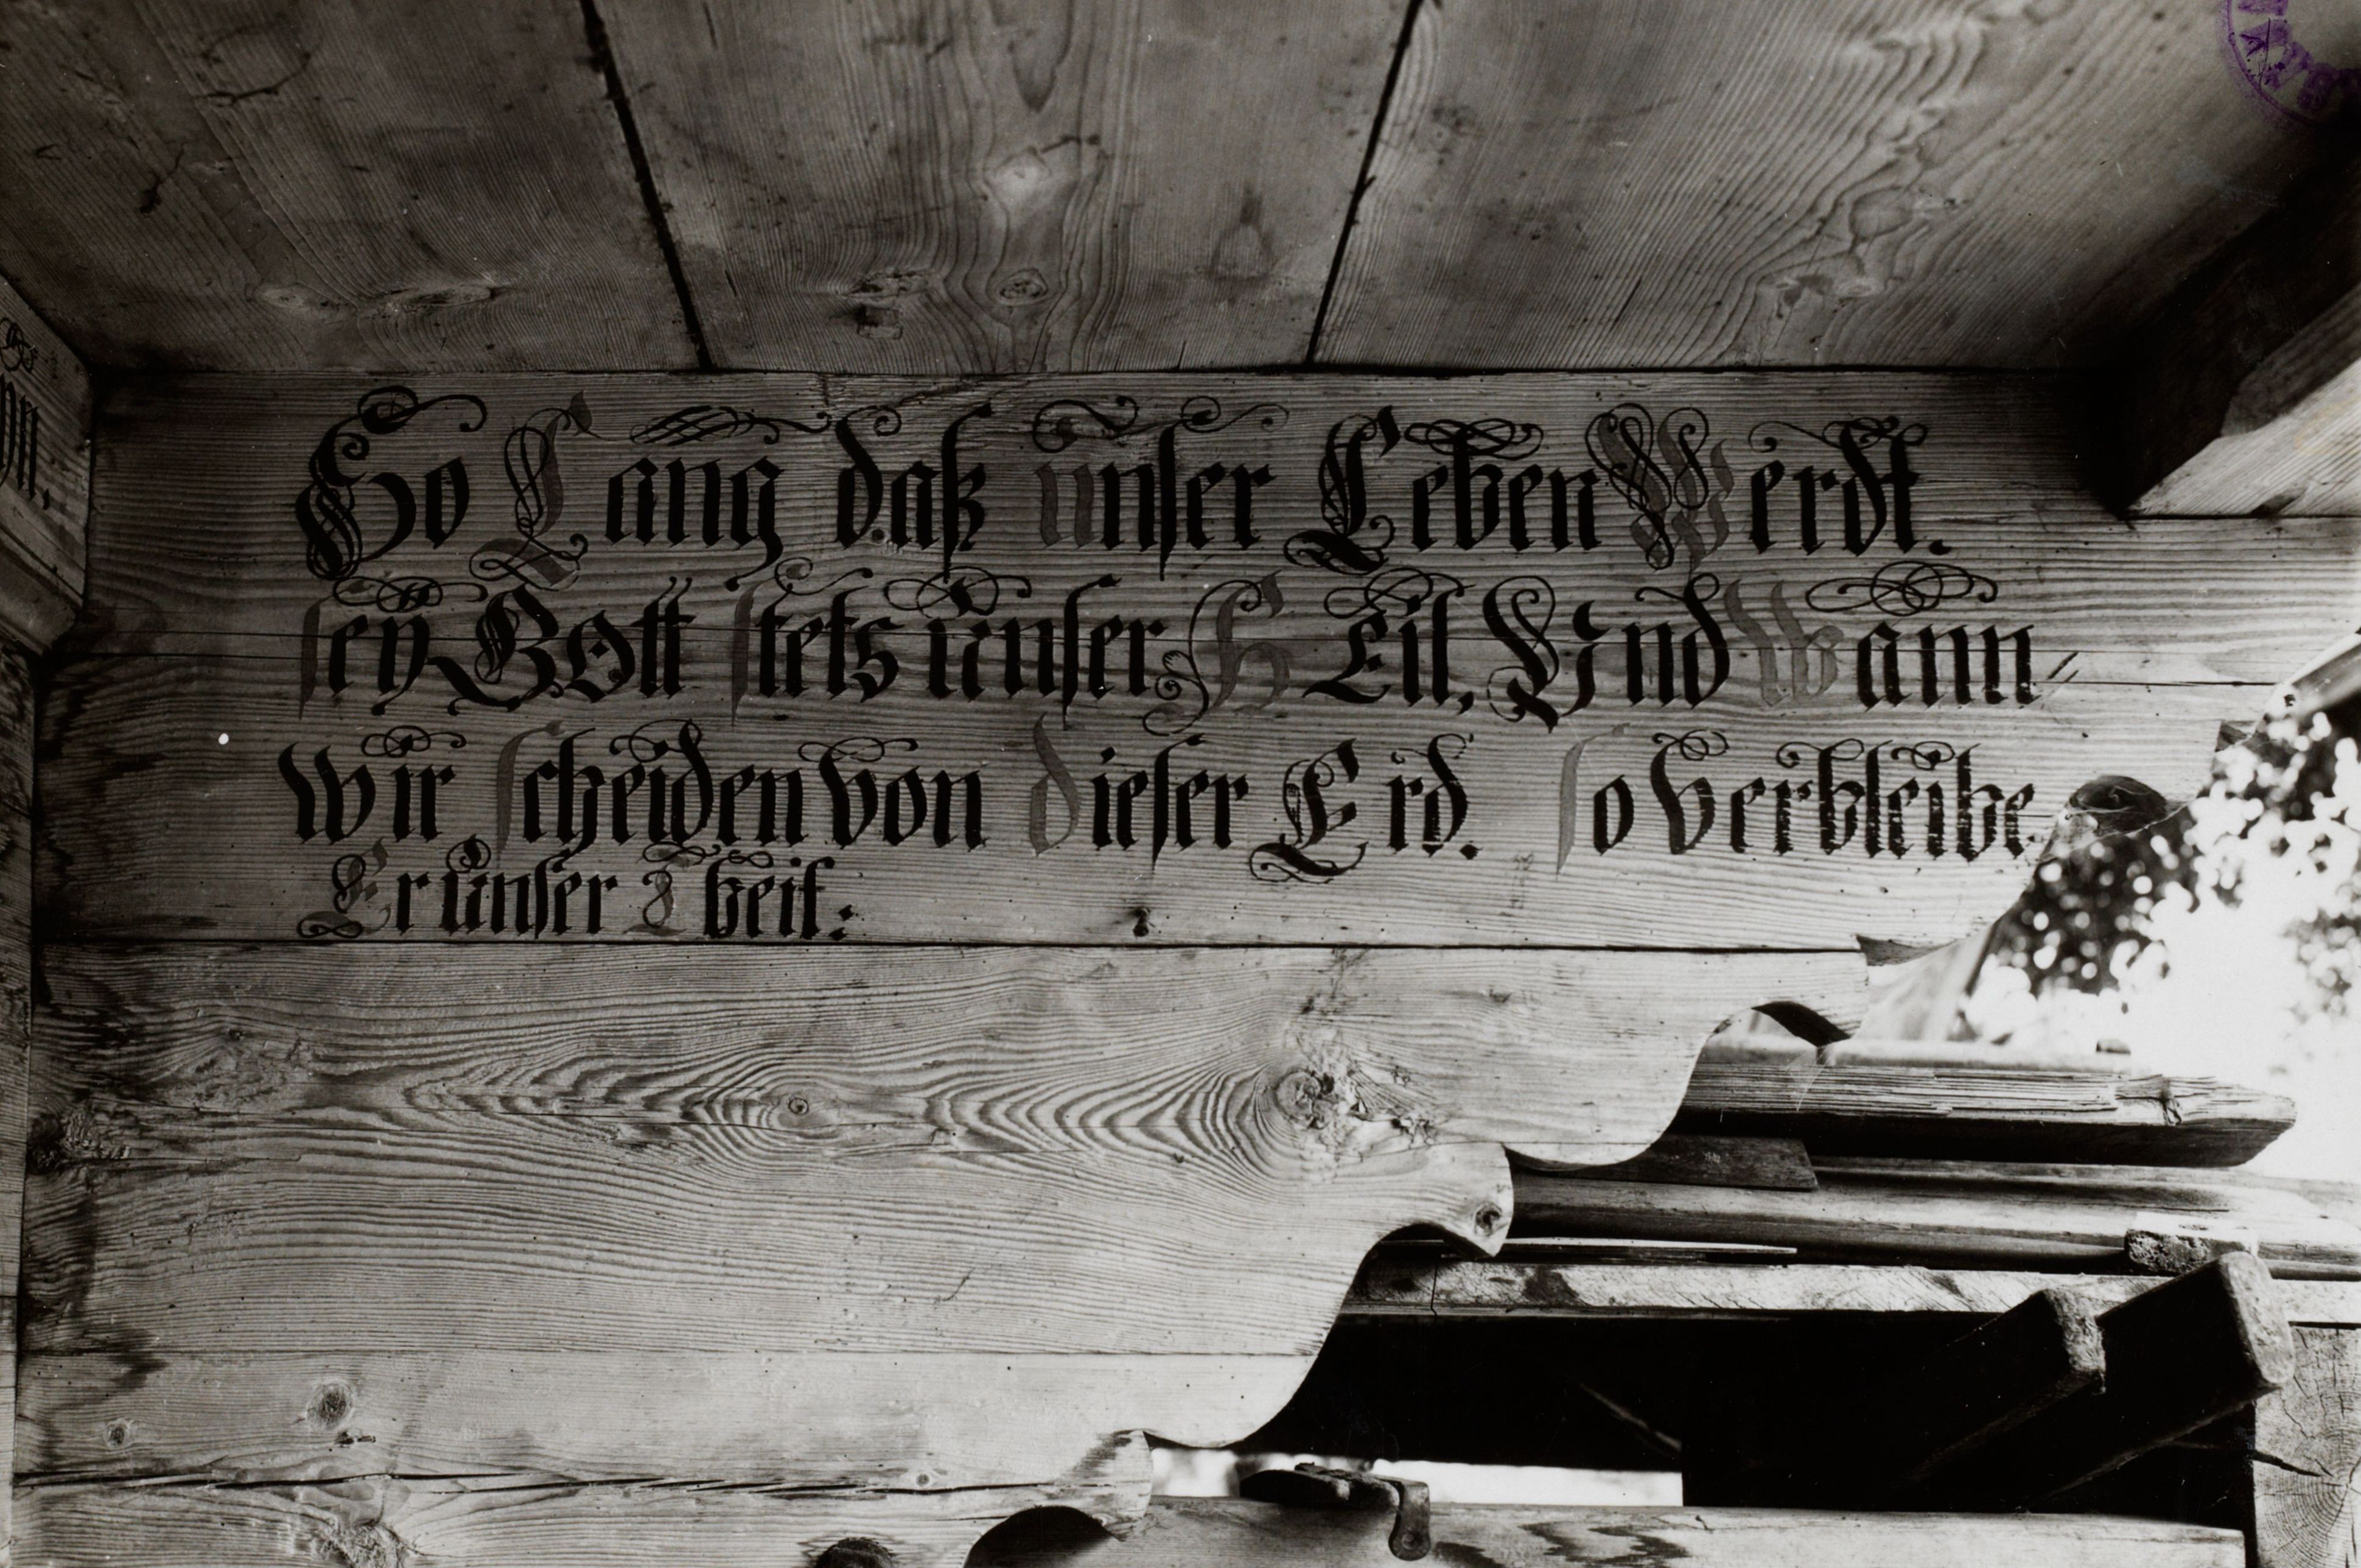 So Lang daß unser Leben Werdt.
sey Gott stets unser HEil, Und Wann
wir scheiden von dieser Erd. so verbleibe
Er unser Theil: